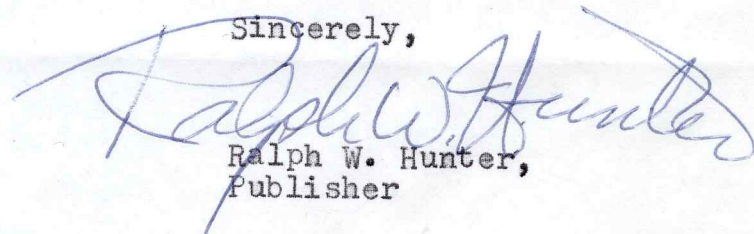 Sincerely,
Ralph W. Hunter
Ralph W. Hunter,
Publisher